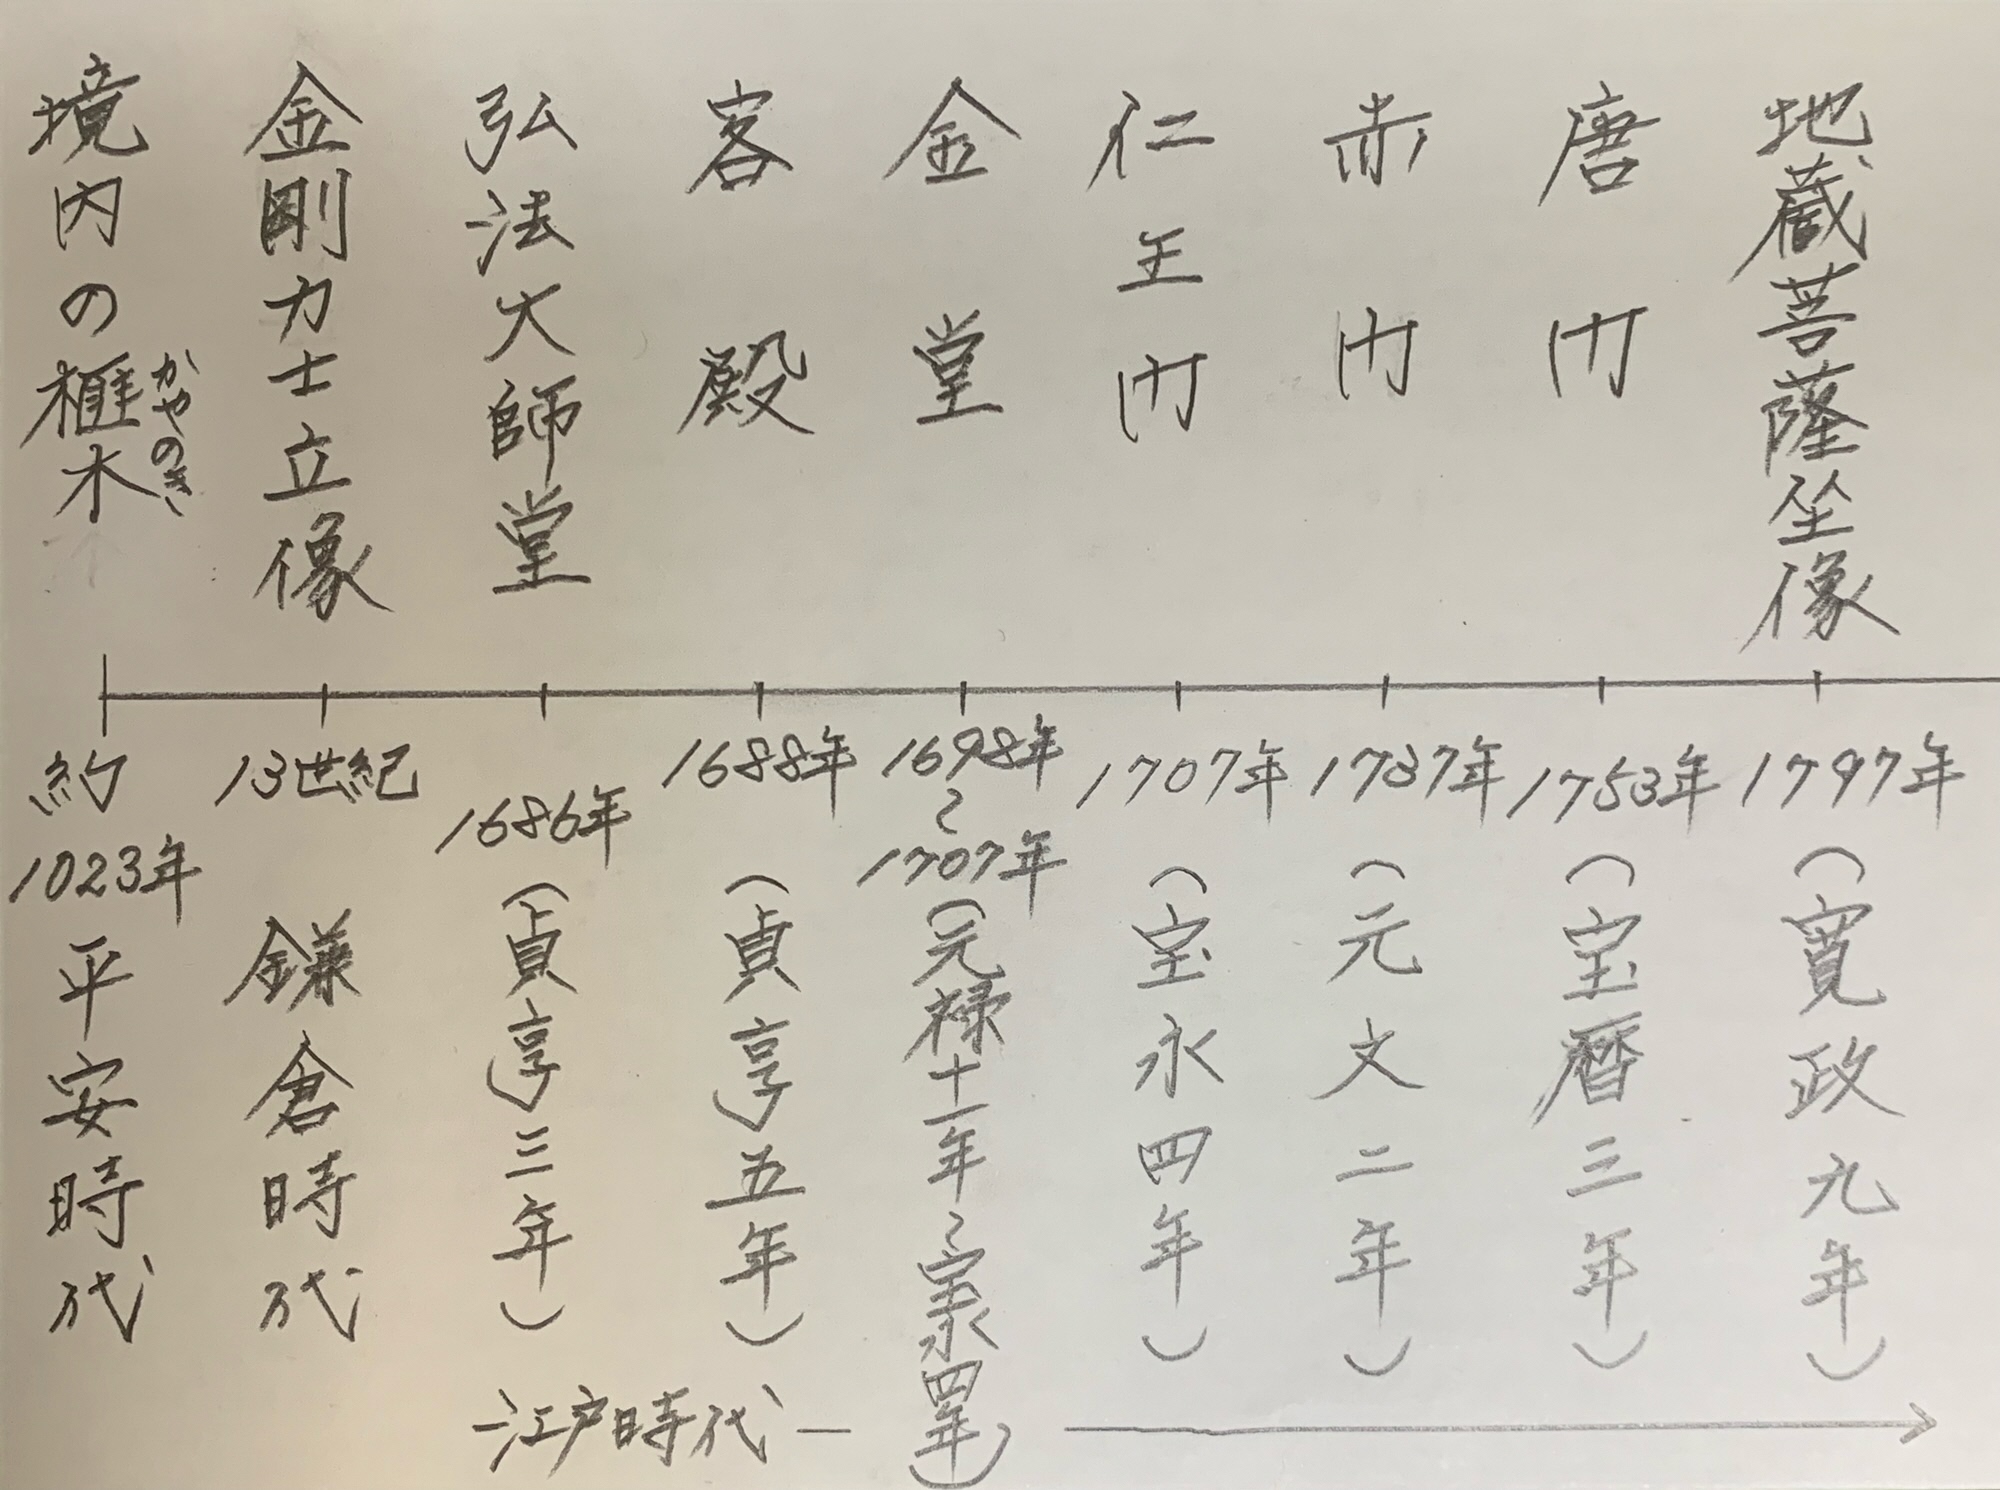 境内の榧木
かやのき
約
1023年
平安時代
金剛力士立像
13世紀
鎌倉時代
弘法大師堂
1686年
(貞享三年)
客殿
1688年
(貞享五年)
金堂
1698年
〜
1707年
(元禄十一年〜宝永四年)
仁王門
1707年
(宝永四年)
赤門
1737年
(元文二年)
唐門
1753年
(宝暦三年)
地蔵菩薩坐像
1797年
(寛政九年)
江戸時代